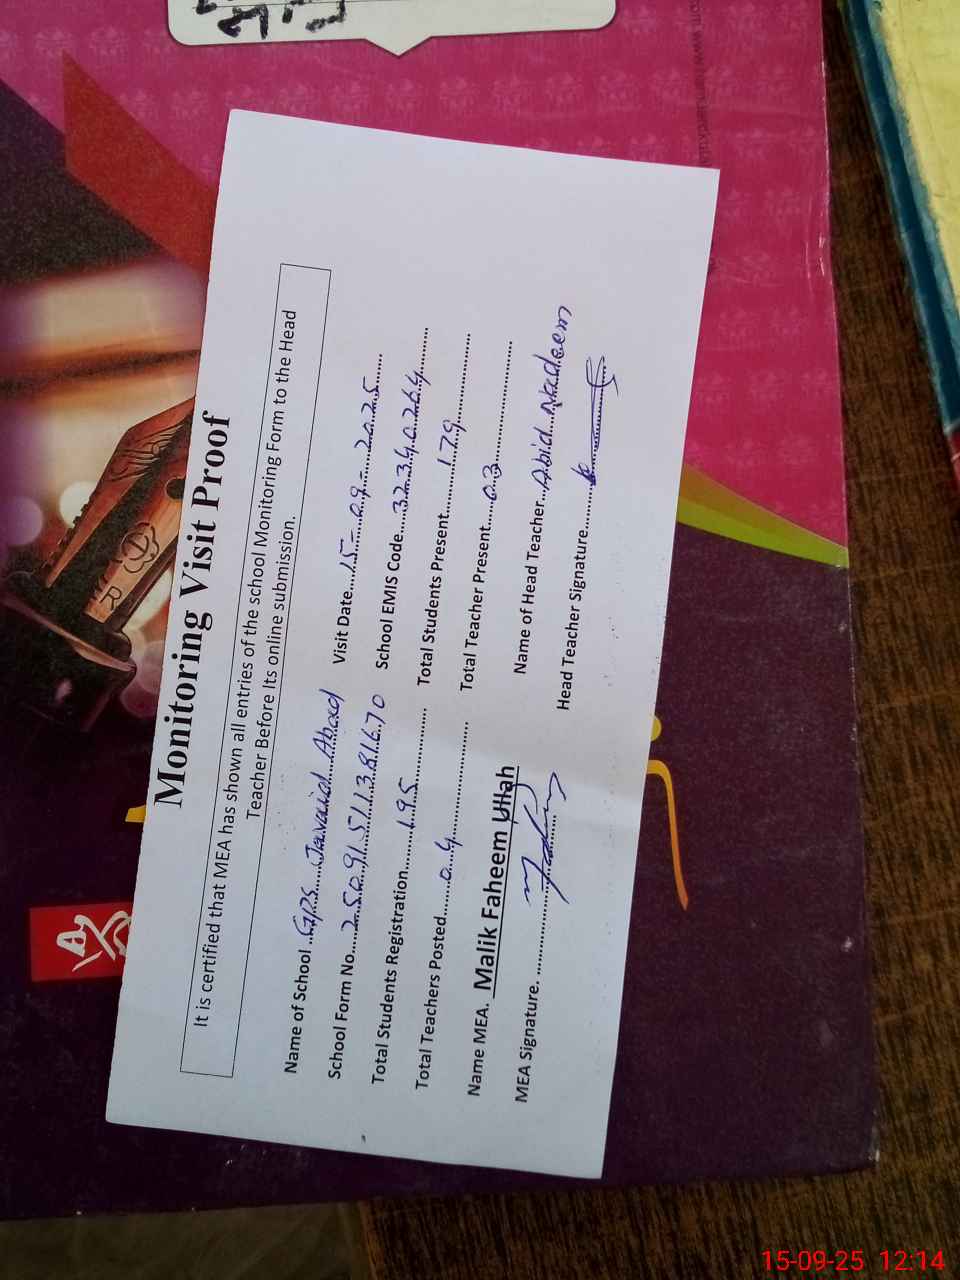 Monitoring Visit Proof
It is certified that MEA has shown all entries of the school Monitoring Form to the Head
Teacher Before Its online submission.
Name of School ..GPS....Javaid..Abad Visit Date....15.-.09.-...2025......
School Form No...25091511381670 School EMIS Code....32340264......
Total Students Registration.........195............ Total Students Present..........179..............
Total Teachers Posted......04.................... Total Teacher Present......03......................
Name MEA. Malik Faheem Ullah Name of Head Teacher...Abid..Nadeem
MEA Signature. ........................ Head Teacher Signature..........................
15-09-25 12:14